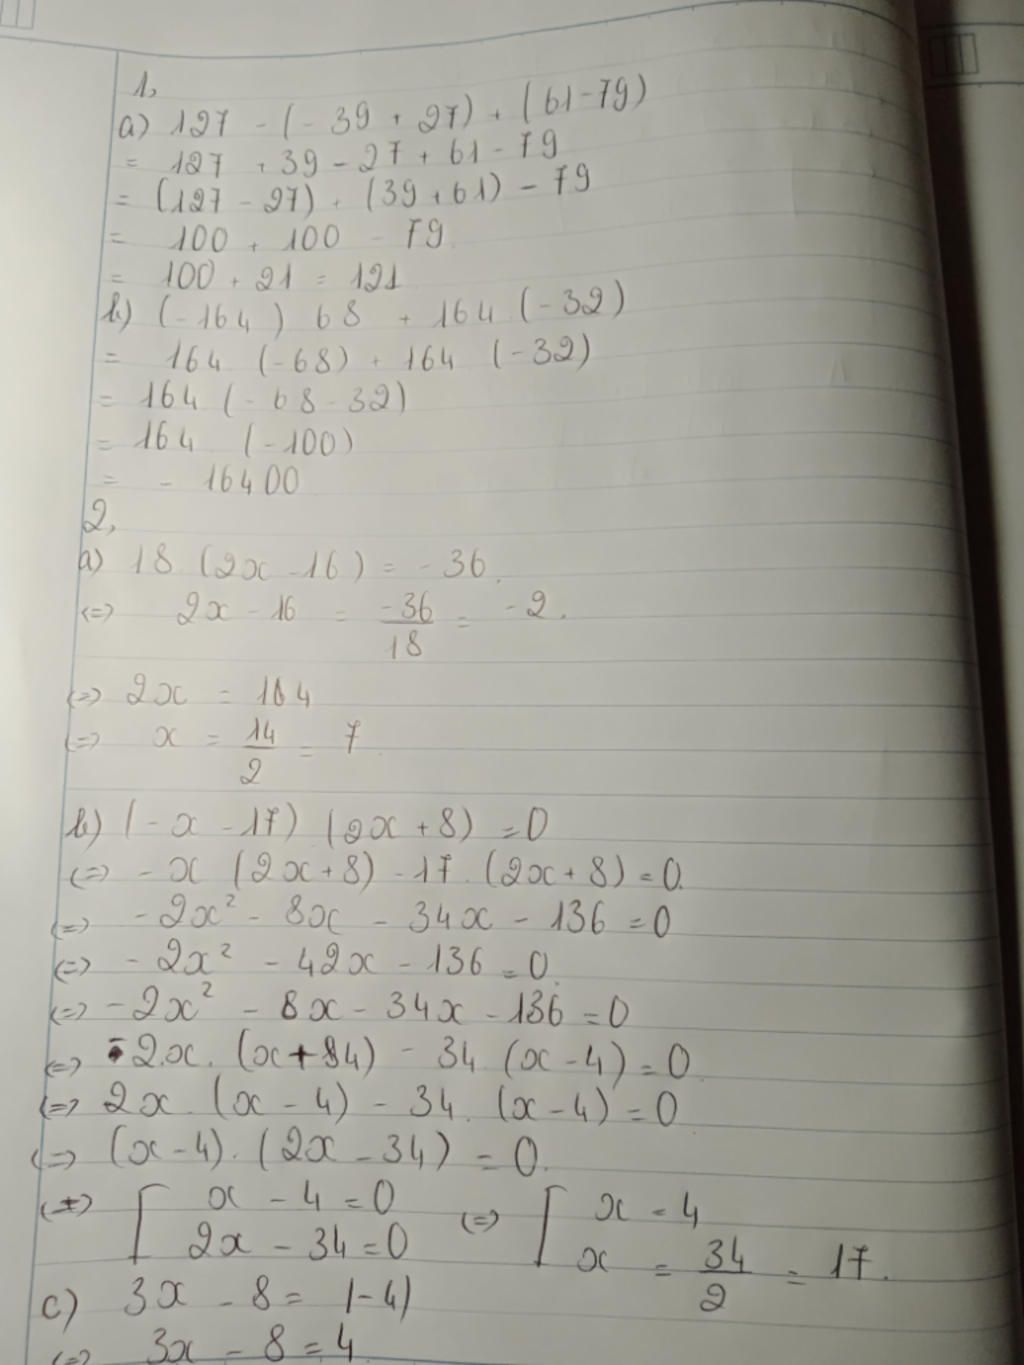 1,
a) 127 - (- 39 + 27) + (61 - 79)
= 127 + 39 - 27 + 61 - 79
= (127 - 27) + (39 + 61) - 79
= 100 + 100 - 79
= 100 + 21 = 121
b) (- 164) 68 + 164 (- 32)
= 164 (- 68) + 164 (- 32)
= 164 (- 68 - 32)
= 164 (- 100)
= - 16400
2,
a) 18 (2x - 16) = - 36.
<=> 2x - 16 = -36/18 = - 2.
<=> 2x = 14
<=> x = 14/2 = 7
b) (- x - 17) (2x + 8) = 0
<=> - x (2x + 8) - 17. (2x + 8) = 0.
<=> - 2x² - 8x - 34x - 136 = 0
<=> - 2x² - 42x - 136 = 0.
<=> - 2x² - 8x - 34x - 136 = 0
<=> - 2.x. (x + 84) - 34 (x - 4) = 0.
<=> 2x. (x - 4) - 34. (x - 4) = 0
<=> (x - 4). (2x - 34) = 0.
<=> [ x - 4 = 0 <=> [ x = 4
2x - 34 = 0 x = 34/2 = 17.
c) 3x - 8 = |- 4|
<=> 3x - 8 = 4